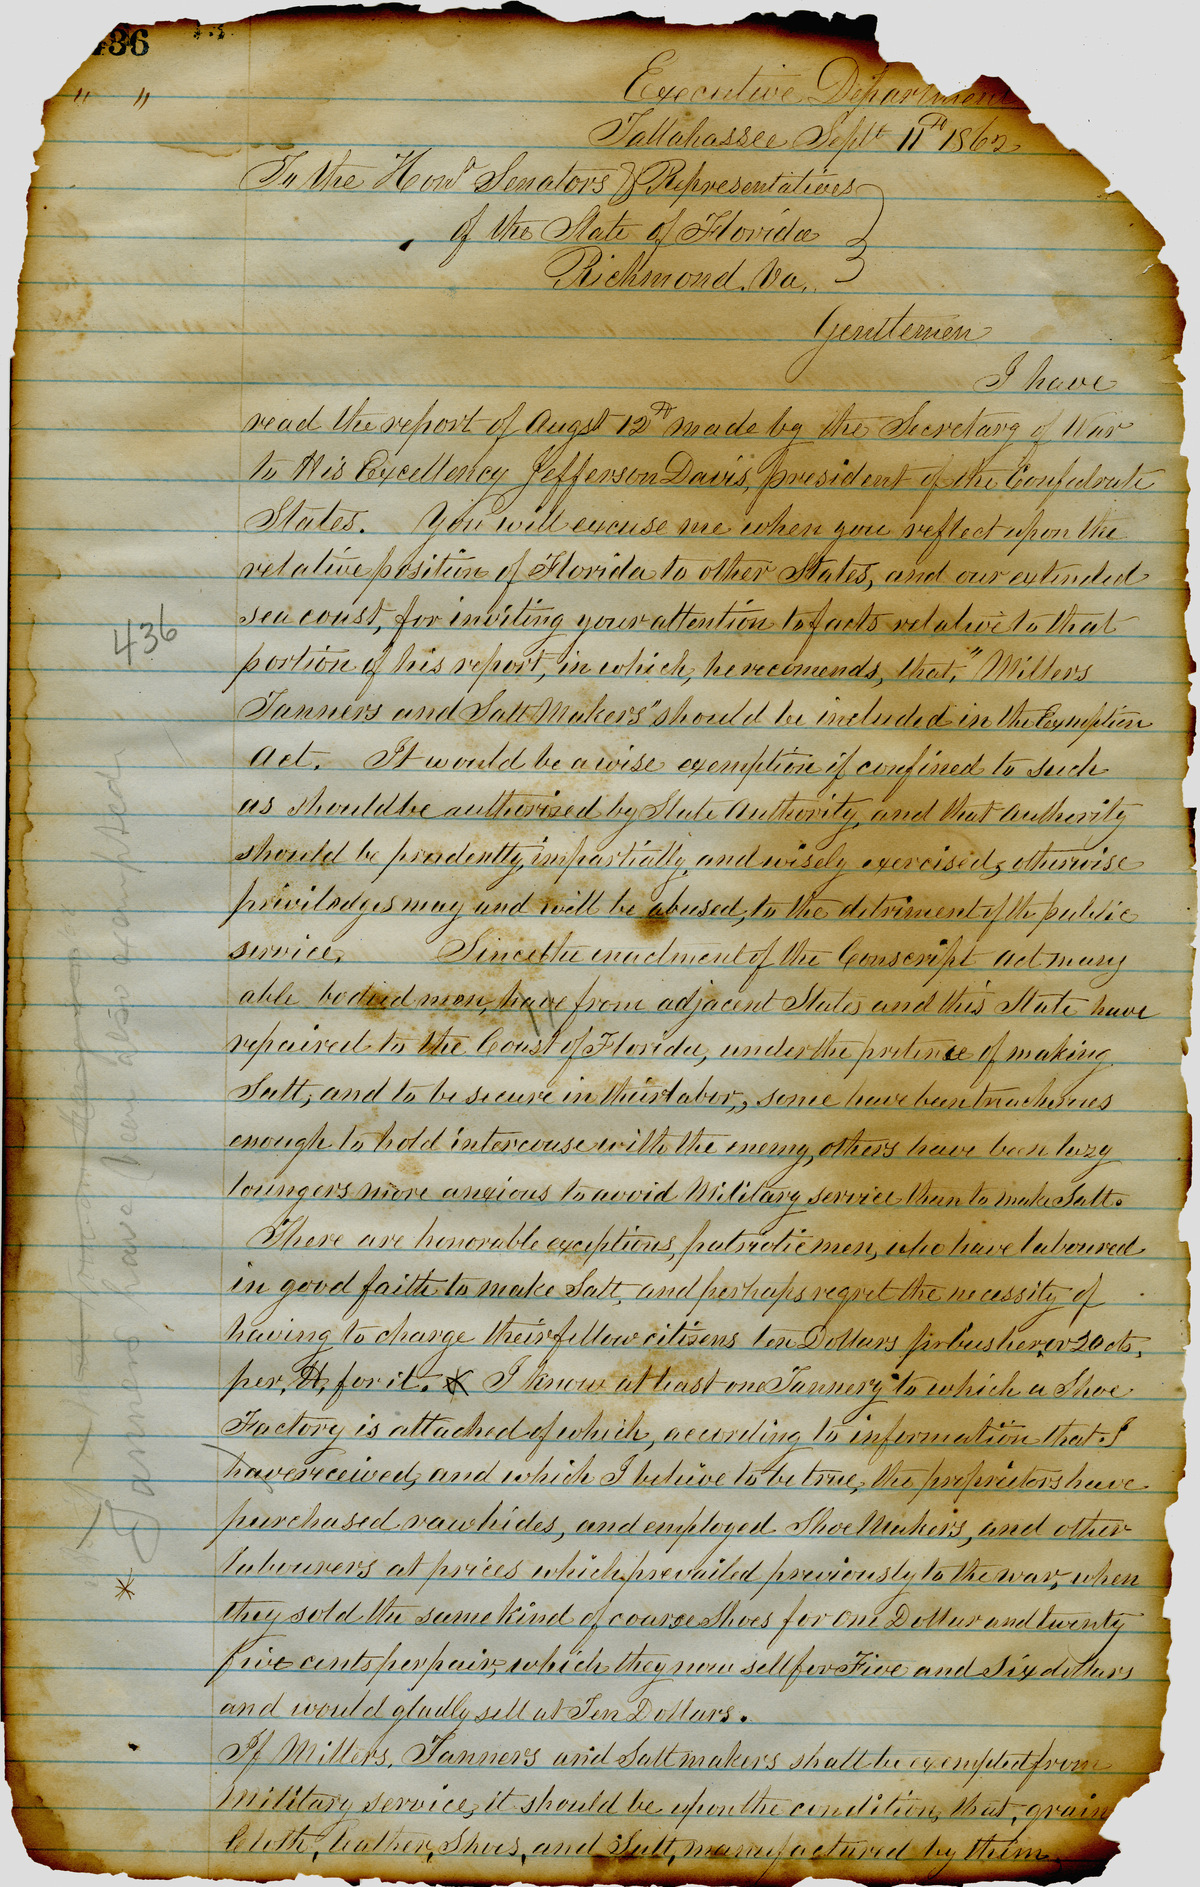 36
" "
Executive Department
Tallahassee Sept 11th 1862
To the Honl Senators & Representatives
of the State of Florida
Richmond, Va.
Gentlemen
I have
read the report of Augst 12th made by the Secretary of War
to His Excellency Jefferson Davis, president of the Confedrate
States. You will excuse me when you reflect upon the
relative position of Florida to other States, and our extended
sea coast, for inviting your attention to facts relative to that
436
portion of his report, in which, he recomends, that, "Millers
Tanners and Salt Makers" should be included in the Exemption
Act. It would be a wise exemption if confined to such
as should be authorized by State Authority, and that Authority
should be prudently, impartially, and wisely exercised, otherwise
priviledges may and will be abused, to the detriment of the public
service. Since the enactment of the Conscript Act many
able bodied men, have from adjacent States and this State have
repaired to the Coast of Florida, under the pretence of making
Salt, and to be secure in their labor, some have been treacherous
enough to hold intercouse with the enemy, others have been lazy
loungers more anxious to avoid Military service than to make Salt.
There are honorable exceptions, patriotic men, who have laboured
in good faith to make Salt, and perhaps regret the necessity of
having to charge their fellow citizens ten Dollars pr bushel, or 20 cts,
per, lb, for it. * I know at least one Tannery to which a Shoe
Factory is attached of which, according to information that I
have received, and which I believe to be true, the proprietors have
purchased raw hides, and employed Shoe Makers, and other
labourers at prices which prevailed previously to the war, when
they sold the same kind of coarse Shoes for One Dollar and twenty
five cents per pair, which they now sell for Five and Six dollars
and would gladly sell at Ten Dollars.
If Millers, Tanners and Salt makers shall be exempted from
Military service, it should be upon the condition, that, grain
Cloth, leather, Shoes, and Salt, manufactured by them
* Tanners have been also exempted